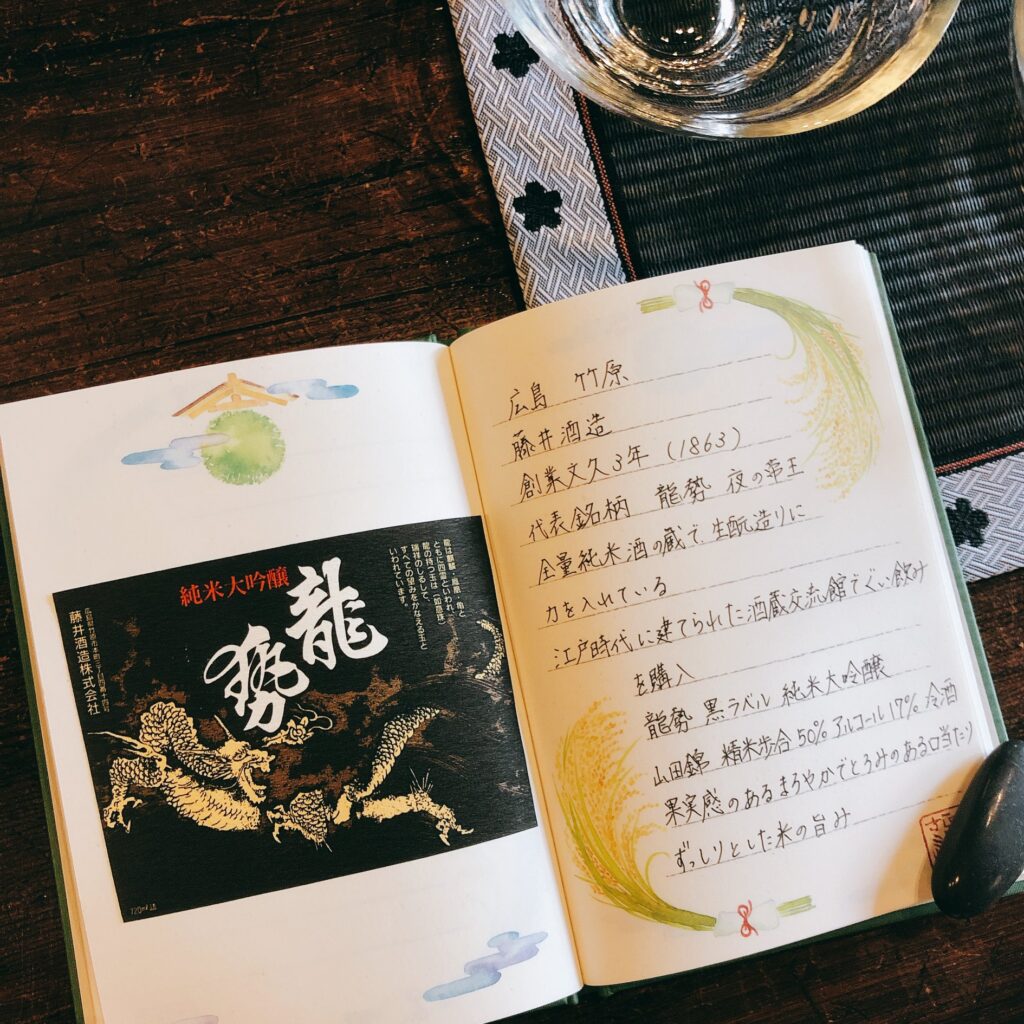 純米大吟醸
龍
勢
龍は麒麟・鳳凰・亀と
ともに四霊といわれ、
龍の持つ玉は(如意珠)
瑞祥のしるしで、
すべての望みをかなえる玉と
いわれています。
広島県竹原市本町三丁目四番十四号
藤井酒造株式会社
720ml詰
広島 竹原
藤井酒造
創業文久3年(1863)
代表銘柄 龍勢 夜の帝王
全量純米酒の蔵で 生酛造りに
力を入れている
江戸時代に建てられた酒蔵交流館でぐい飲み
を購入
龍勢 黒ラベル 純米大吟醸
山田錦 精米歩合50% アルコール17% 冷酒
果実感のあるまろやかでとろみのある口当たり
ずっしりとした米の旨み